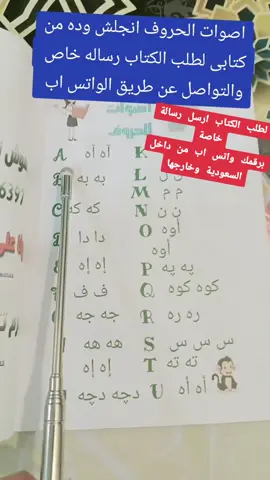 اصوات الحروف انجلش وده من
كتابى لطلب الكتاب رساله خاص
والتواصل عن طريق الواتس اب
لطلب الكتاب ارسل رسالة
خاصة
برقمك واتس اب من داخل
السعودية وخارجها
اصوات
الحروف
A أه أه
K
به به
L
M م م
C كه كه
N ن ن
دا دا
O أوه
أوه
إه إه
P په په
ف ف
Q كوه كوه
جه جه
R ره ره
هه هه
S س س س
إه إه
T ته ته
دچه دچه
U أه أه